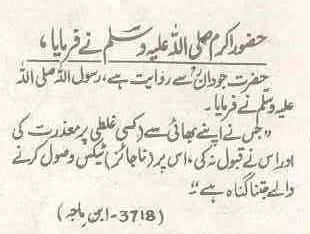 حضور اکرم صلی اللہ علیہ وسلم نے فرمایا ،
حضرت جودانؓ سے روایت ہے، رسول اللہ صلی اللہ
علیہ وسلم نے فرمایا۔
”جس نے اپنے بھائی سے (کسی غلطی پر) معذرت کی
اور اس نے قبول نہ کی، اس پر (ناجائز) ٹیکس وصول کرنے
والے جتنا گناہ ہے“۔
(3718- ابن ماجہ)